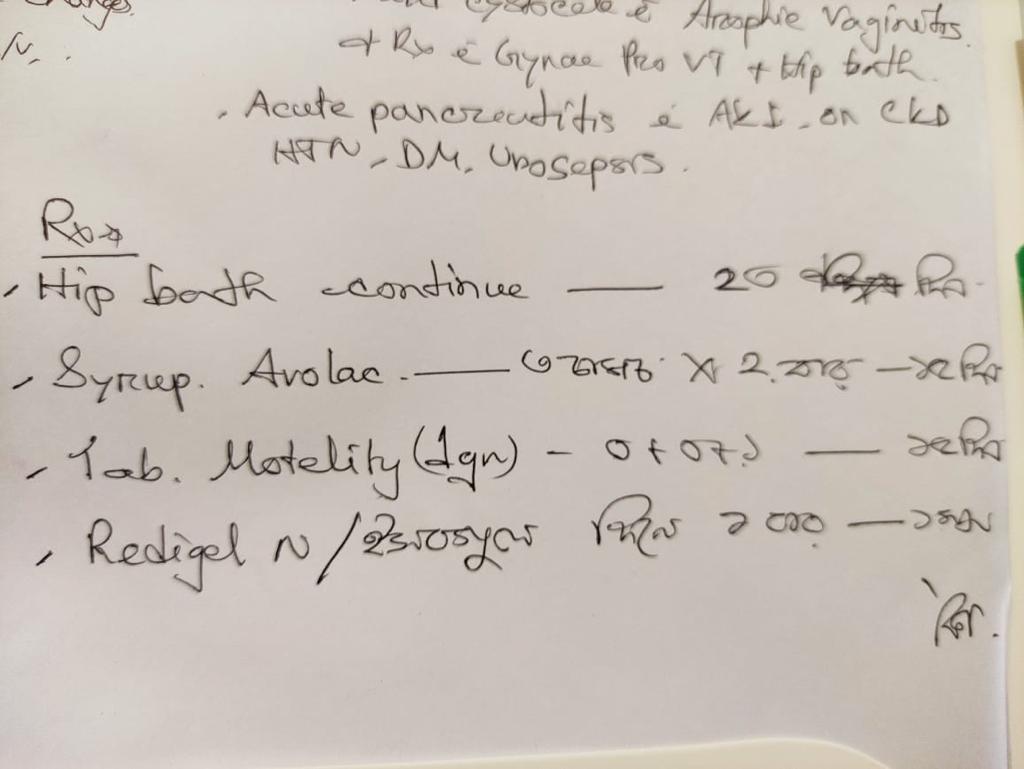 changes.
cystocele ē Atrophic Vaginitis.
N. .
+ Rx ē Gynae Pro VT + Hip bath.
. Acute pancreatitis ē AKI. on CKD
HTN, DM, Urosepsis.
Rx→
Hip bath continue — 20 দিন
Syrup. Avolac. — ৩ চামচ X 2 বার — ১৫ দিন
Tab. Motelity (1gm) - 0+0+১ — ১৫ দিন
Redigel N / দিনে ২ বার —
দিন.